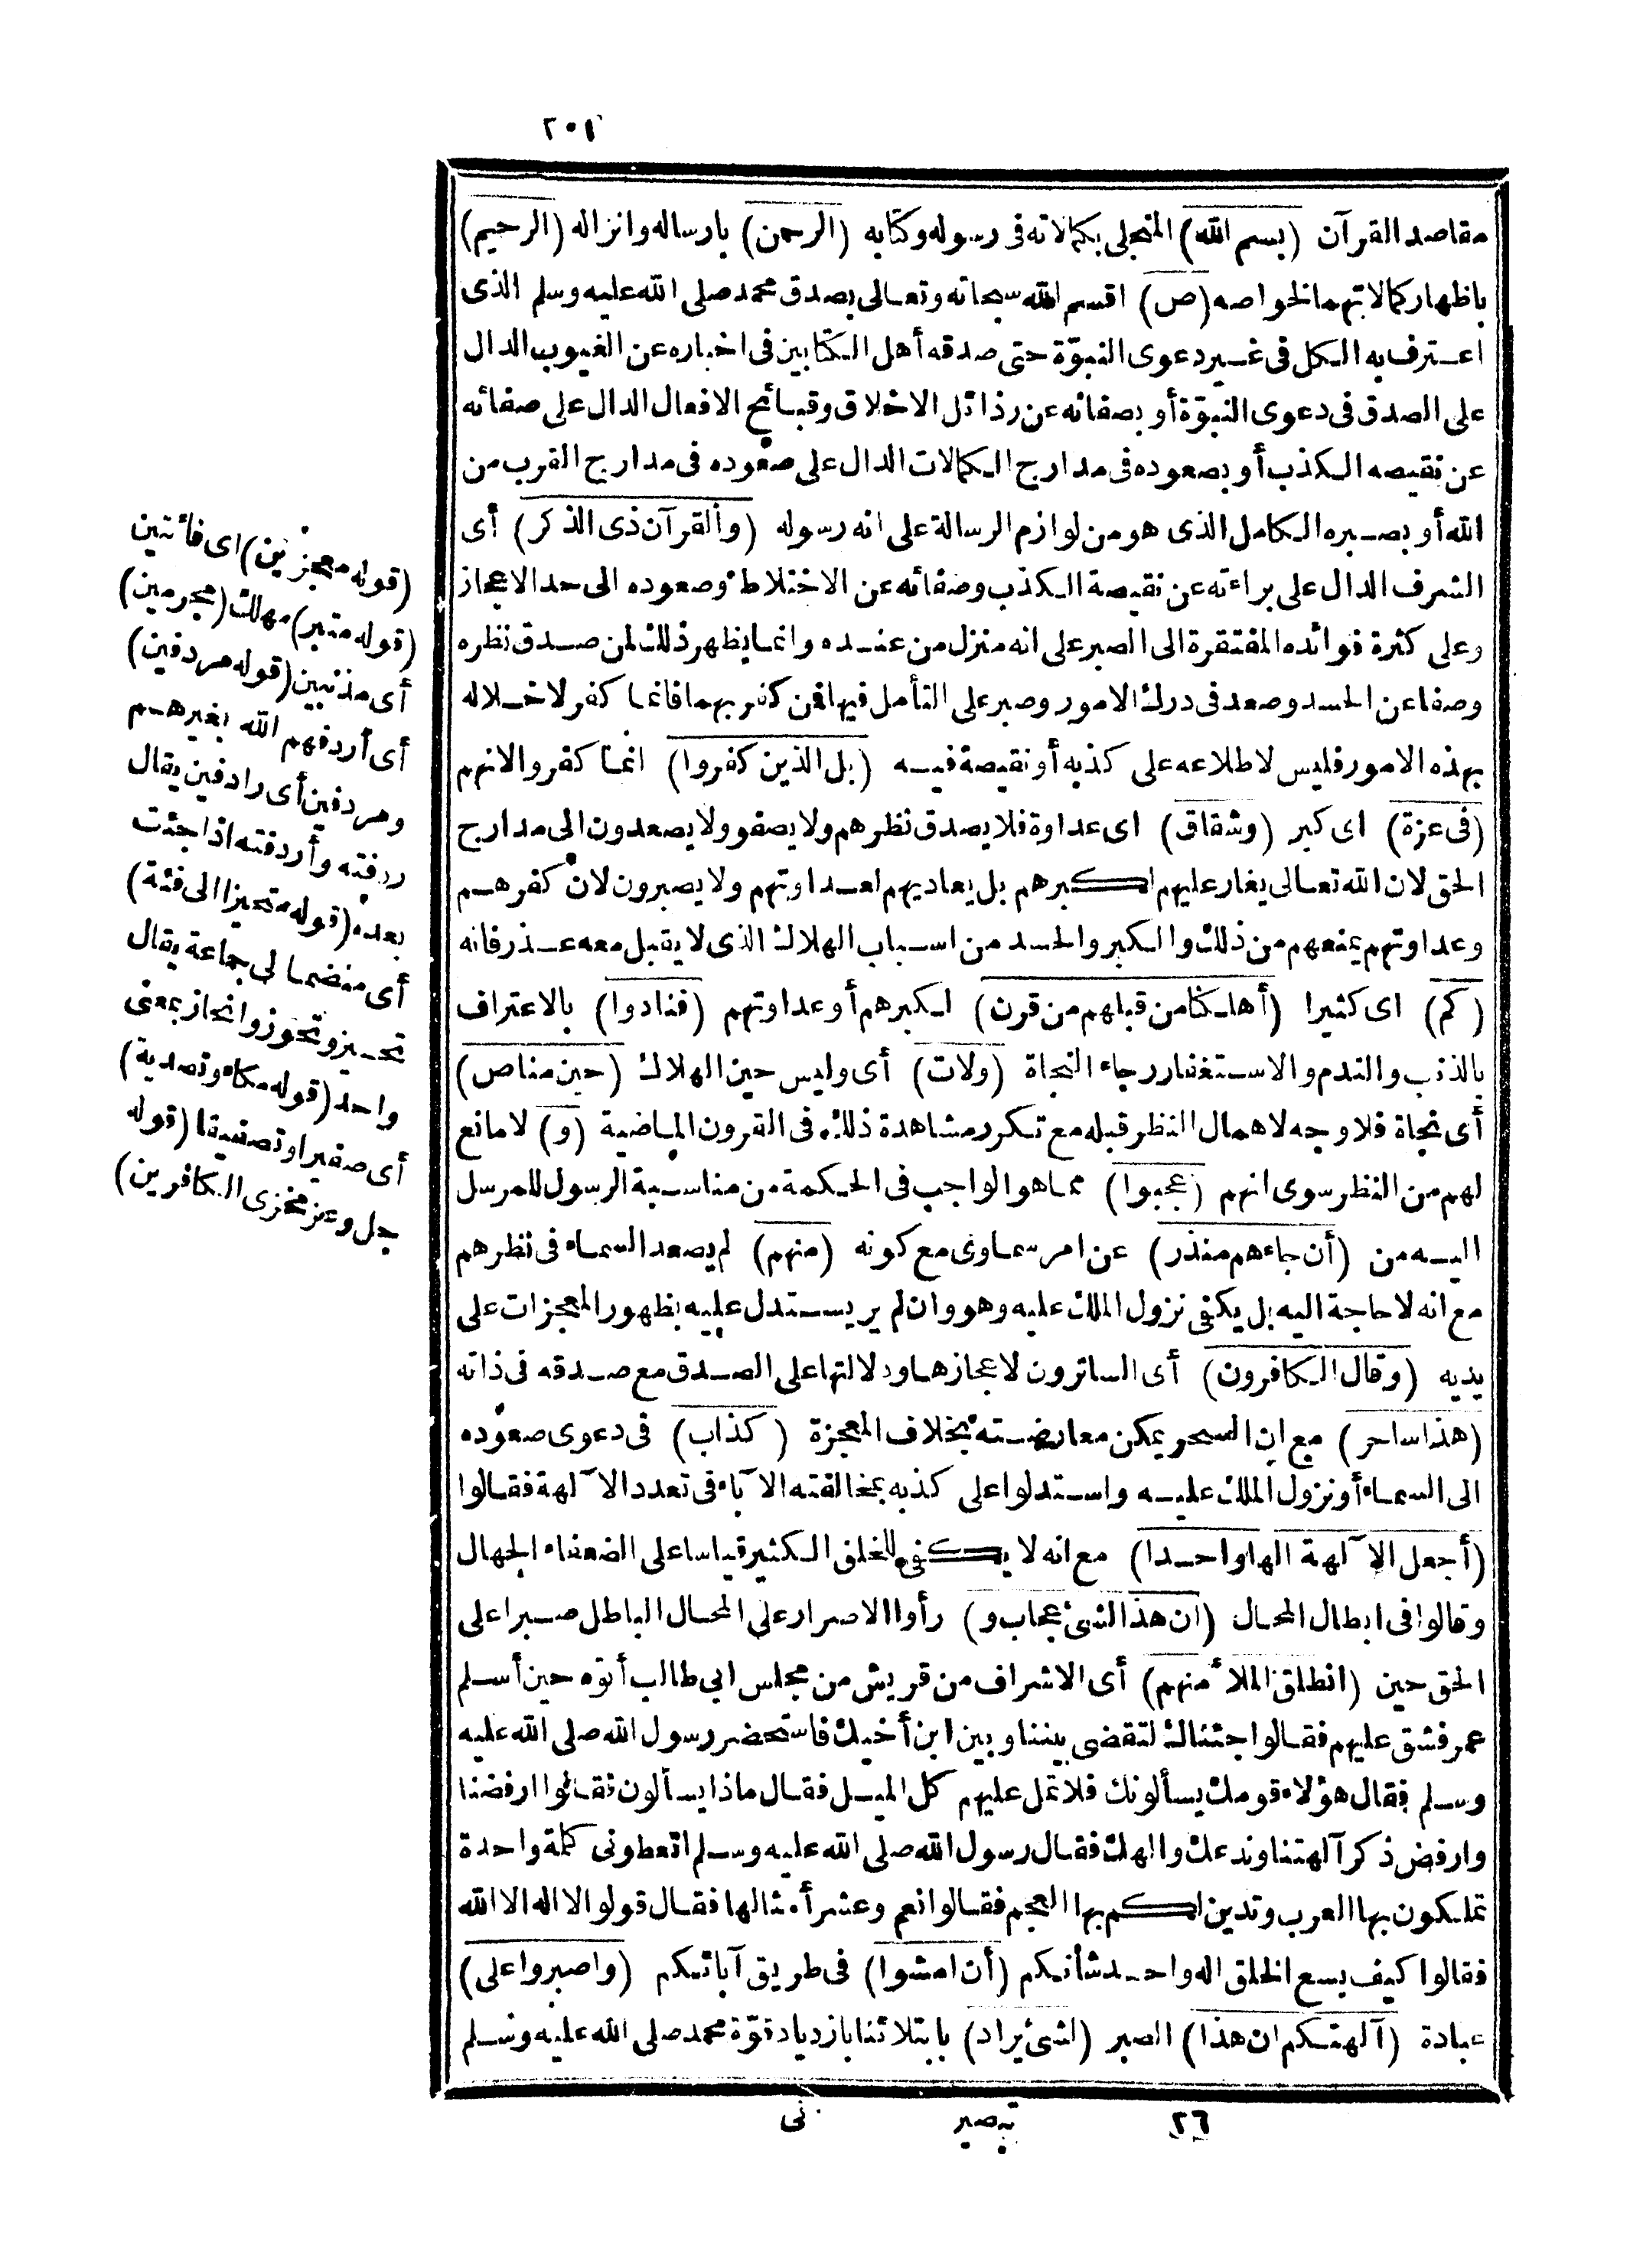 ٢٠١
مقاصد القرآن (بسم الله) المتجلى بكمالاته فى رسوله وكتابه (الرحمن) بارساله وانزاله (الرحيم)
باظهار كمالاتهما لخواصه (ص) اقسم الله سبحانه وتعالى بصدق محمد صلى الله عليه وسلم الذى
اعترف به الكل فى غير دعوى النبوّة حتى صدقه أهل الكتابين فى اخباره عن الغيوب الدال
على الصدق فى دعوى النبوّة أو بصفائه عن رذائل الاخلاق وقبائح الافعال الدال على صفائه
عن نقيصه الكذب أو بصعوده فى مدارج الكمالات الدال على صعوده فى مدارج القرب من
الله أو بصبره الكامل الذى هو من لوازم الرسالة على انه رسوله (والقرآن ذى الذكر) أى
الشرف الدال على براءته عن نقيصة الكذب وصفائه عن الاختلاط وصعوده الى حد الاعجاز
وعلى كثرة فوائده المفتقرة الى الصبر على انه منزل من عنده وانما يظهر ذلك لمن صدق نظره
وصفا عن الحسد وصعد فى درك الامور وصبر على التأمل فيها فمن كفر بهما فانما كفر لاخلاله
بهذه الامور فليس لاطلاعه على كذبه أو نقيصة فيه (بل الذين كفروا) انما كفروا لانهم
(فى عزة) اى كبر (وشقاق) اى عداوة فلا يصدق نظرهم ولا يصفو ولا يصعدون الى مدارج
الحق لان الله تعالى يغار عليهم لكبرهم بل يعاديهم لعداوتهم ولا يصبرون لان كفرهم
وعداوتهم يمنعهم من ذلك والكبر والحسد من اسباب الهلاك الذى لا يقبل معه عذر فانه
(كم) اى كثيرا (أهلكنا من قبلهم من قرن) لكبرهم أو عداوتهم (فنادوا) بالاعتراف
بالذنب والندم والاستغفار رجاء النجاة (ولات) أى وليس حين الهلاك (حين مناص)
أى نجاة فلا وجه لاهمال النظر قبله مع تكرر مشاهدة ذلك فى القرون الماضية (و) لا مانع
لهم من النظر سوى انهم (عجبوا) مما هو الواجب فى الحكمة من مناسبة الرسول للمرسل
اليه من (أن جاءهم منذر) عن امر سماوى مع كونه (منهم) لم يصعد السماء فى نظرهم
مع انه لا حاجة اليه بل يكفى نزول الملك عليه وهو وان لم ير يستدل عليه بظهور المعجزات على
يديه (وقال الكافرون) أى الساترون لاعجازها ودلالتها على الصدق مع صدقه فى ذاته
(هذا ساحر) مع ان السحر يمكن معارضته بخلاف المعجزة (كذاب) فى دعوى صعوده
الى السماء أو نزول الملك عليه واستدلوا على كذبه بمخالفته الآباء فى تعدد الآلهة فقالوا
(أجعل الآلهة الها واحدا) مع انه لا يكفى للخلق الكثير قياسا على الضعفاء الجهال
وقالوا فى ابطال المحال (ان هذا لشئ عجاب و) رأوا الاصرار على المحال الباطل صبرا على
الحق حين (انطلق الملأ منهم) أى الاشراف من قريش من مجلس ابى طالب أتوه حين أسلم
عمر فشق عليهم فقالوا جئناك لتقضى بيننا وبين ابن أخيك فاستحضر رسول الله صلى الله عليه
وسلم فقال هؤلاء قومك يسألونك فلا تمل عليهم كل الميل فقال ماذا يسألون فقالوا ارفضنا
وارفض ذكر آلهتنا وندعك والهك فقال رسول الله صلى الله عليه وسلم اتعطونى كلمة واحدة
تملكون بها العرب وتدين لكم بها العجم فقالوا نعم وعشر أمثالها فقال قولوا لا اله الا الله
فقالوا كيف يسع الخلق اله واحد شأنكم (أن امشوا) فى طريق آبائكم (واصبروا على)
عبادة (آلهتكم ان هذا) الصبر (لشئ يراد) بابتلائنا بازدياد قوّة محمد صلى الله عليه وسلم
(قوله معجزين) اى فائتين
(قوله متبر) مهلك (مجرمين)
أى مذنبين (قوله مردفين)
أى أردفهم الله بغيرهم
ومردفين أى رادفين يقال
ردفته وأردفته اذا جئت
بعده (قوله متحيزا الى فئة)
أى منضما لى جماعة يقال
تحيز وتحوز وانحاز بمعنى
واحد (قوله مكاء وتصدية)
أى صفيرا وتصفيقا (قوله
جل وعز مخزى الكافرين)
٢٦ تبصير نى